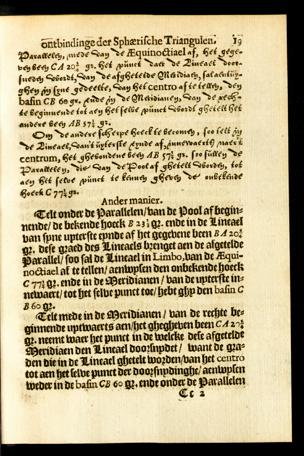 ontbindinge der Sphærische Triangulen. 19
Parallelen, mede van de Æquinoctiael af, het gege-
ven been CA 20¾ gr. het punct daer de Lineael door-
sneden wordt, van de afgetelde Meridiaen, sal
ghen in syne gedeelte, van het centro af te tellen, den
basin CB 60 gr. ende in de Meridianen, van de rech-
te beginnende tot aen het selve punct wordt getelt het
andere been AB 57½ gr.
Om de andere scherpe hoeck te becomen, soo telt in
de Lineael, van 't uyterste eynde af, innewaerts naer 't
centrum, het ghebondene been AB 57½ gr. soo sullen de
Parallelen, die van de Pool af ghetelt worden, tot
aen het selve punct te kennen gheven de onbekende
hoeck C 77¼ gr.
Ander manier.
Telt onder de Parallelen/van de Pool af begin-
nende/de bekende hoeck B 23½ gr. ende in de Lineael
van syne uyterste eynde af het gegebene been BA 20¾
gr. dese graed des Lineaels brenget aen de afgetelde
Parallel/soo sal de Lineael in Limbo, van de Æqui-
noctiael af te tellen/aenwysen den onbekende hoeck
C 77¼ gr. ende in de Meridianen/van de uyterste in-
newaert/tot het selve punct toe/hebt ghy den basin C
B 60 gr.
Telt mede in de Meridianen/van de rechte be-
ginnende uptwaerts aen/het ghegheven been CA 27¾
gr. neemt waer het punct in de welcke dese afgetelde
Meridiaen den Lineael doorsnydet/want de gra-
den die in de Lineael ghetelt worden/van het centro
tot aen het selve punct der doorsnydinghe/aenwysen
weder in de basin CB 60 gr. ende onder de Parallelen
Cc 2